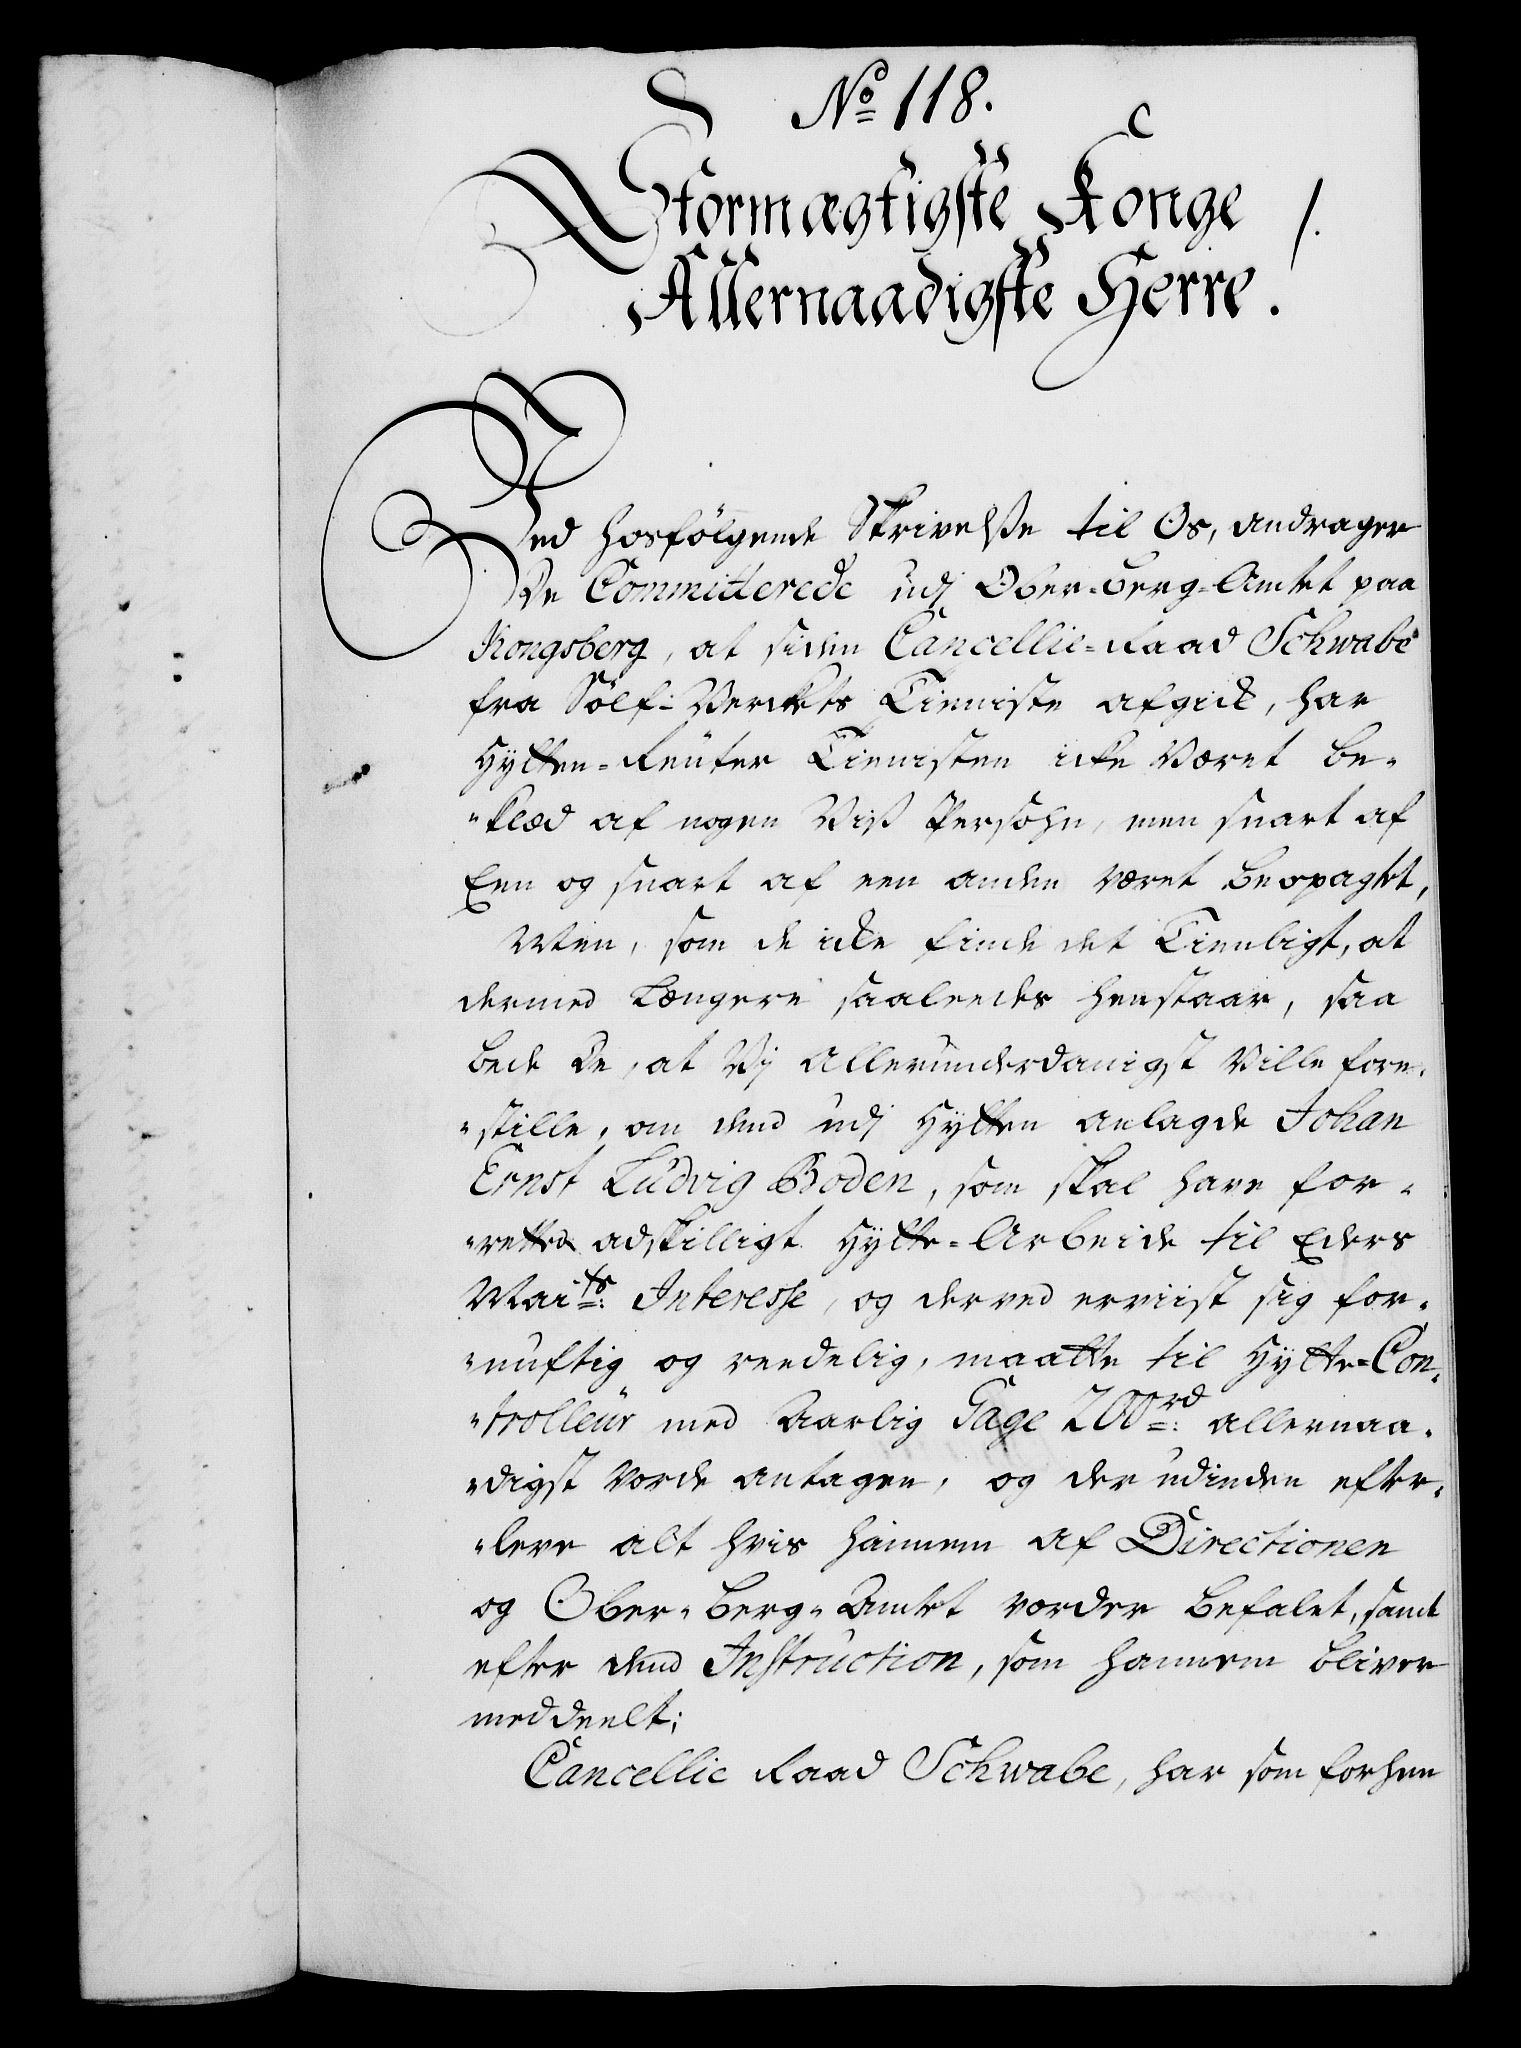 No 118.
Stormægtigste Konge
Allernaadigste Herre.
Ved hosfölgende Skrivelsse til Os, andrager
De Committerede udj Ober-Berg-Amtet paa
Kongsberg, at siden Cancellie-Raad Schwabe
fra Sölf-Verckets Tieniste afgick, har
Hytten-Reüter Tienisten icke Været be-
-klæd af nogen Viß Persohn, men snart af
Een og snart af een anden været beopagtet,
Men, som de icke finde det Tienligt, at
dermed Længere saaleedes henstaar, saa
bede De, at Vj allerunderdanigst Ville fore-
-stille, om dend udj Hytten anlagde Johan
Ernst Ludvig Boden, som skal have for-
-retted adskilligt Hytte-Arbeide til Eders
Maits: Interesse, og derved erviist sig for-
-nuftig og reedelig, maatte til Hytte-Con-
-trolleür med Aarlig Gage 200rd: allernaa-
-digst Vorde antagen, og der udinden efter-
-leve alt hvis hannem af Directionen
og Ober-Berg-Amtet vorder befalet, samt
efter dend Instruction, som hannem bliver
meddeelt;
Cancellie Raad Schwabe, har som forhen